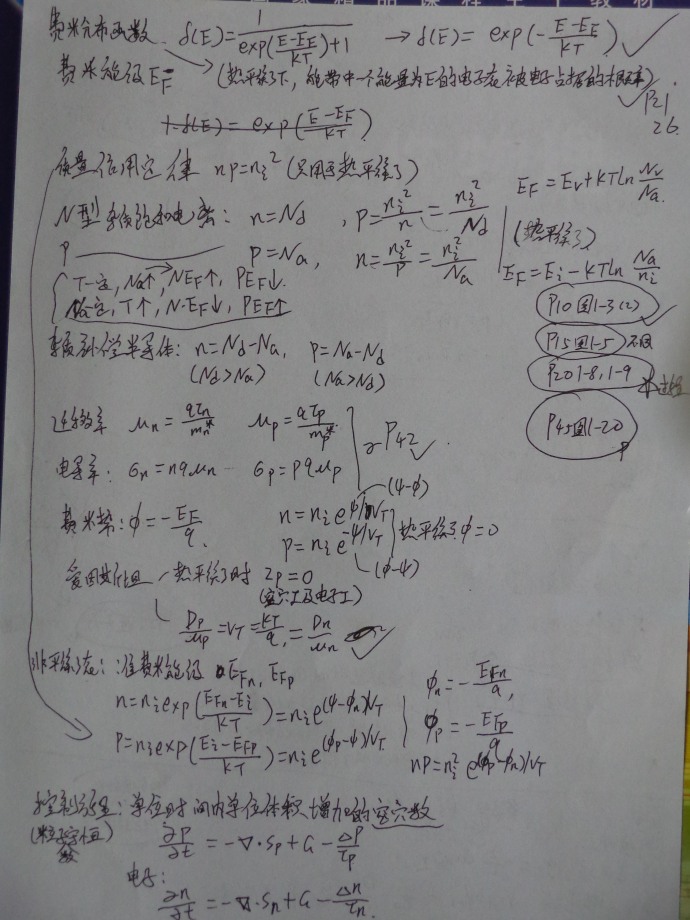 费米分布函数. f(E) = 1/(exp((E-EF)/KT)+1) → f(E) = exp(-(E-EF)/KT) ✓
费米能级EF (热平衡下, 能带中一个能量为E的电子态被电子占据的概率) ✓P21
26.
1-f(E) = exp((E-EF)/KT)
质量作用定律 np=ni² (只用于热平衡下)
EF = Ev+KTln Nv/Na.
N型 饱和电离: n=Nd, p=ni²/n=ni²/Nd
(热平衡下)
P —— p=Na, n=ni²/p=ni²/Na
EF=Ei-KTln Na/ni
T一定, Na↑, NEF↑, PEF↓.
Na一定, T↑, N·EF↓, PEF↑
P10图1-3(2) ✓
P15图1-5
P20 1-8, 1-9
P45图1-20
杂质补偿半导体: n=Nd-Na, p=Na-Nd
(Nd>Na) (Na>Nd)
迁移率 μn=qτn/mn* μp=qτp/mp*
P42 ✓
电导率: σn=nqμn σp=pqμp
费米势: φ=-EF/q
n=ni e^(ψ/VT) (ψ-φ)
p=ni e^(-ψ/VT) (φ-ψ)
热平衡下φ=0
爱因斯坦 热平衡下时 Ip=0
(空穴I及电子I)
Dp/μp=VT=KT/q=Dn/μn ✓
非平衡态: 准费米能级 EFn, EFp
n=ni exp((EFn-Ei)/KT)=ni e^((ψ-φn)/VT)
φn=-EFn/q
p=ni exp((Ei-EFp)/KT)=ni e^((φp-ψ)/VT)
φp=-EFp/q
np=ni² e^((φp-φn)/VT)
控制方程: 单位时间内单位体积增加的空穴数
∂p/∂t = -∇·Sp+G-Δp/τp
电子:
∂n/∂t = -∇·Sn+G-Δn/τn